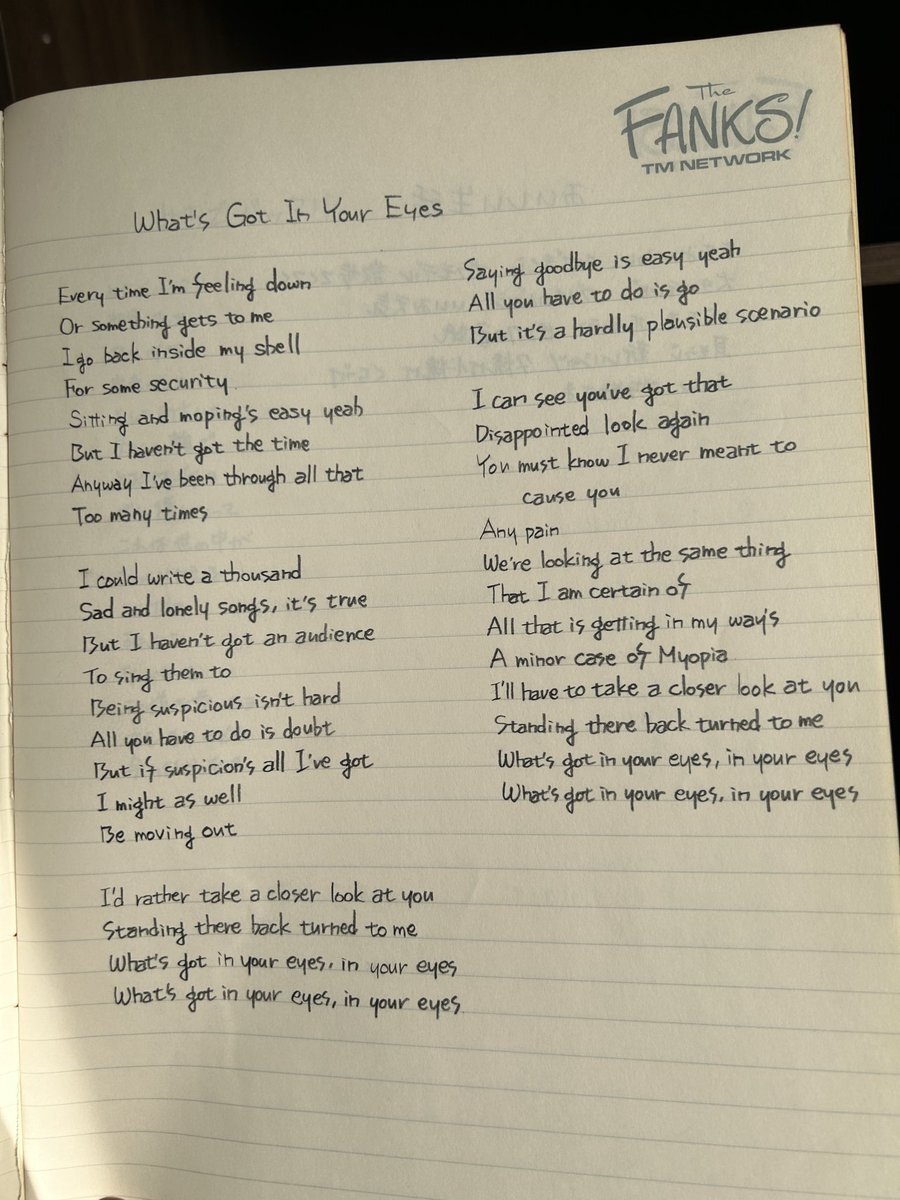 The
FANKS!
TM NETWORK
What's Got In Your Eyes
Every time I'm feeling down
Or something gets to me
I go back inside my shell
For some security.
Sitting and moping's easy yeah
But I haven't got the time
Anyway I've been through all that
Too many times
I could write a thousand
Sad and lonely songs, it's true
But I haven't got an audience
To sing them to
Being suspicious isn't hard
All you have to do is doubt
But if suspicion's all I've got
I might as well
Be moving out
I'd rather take a closer look at you
Standing there back turned to me
What's got in your eyes, in your eyes
What's got in your eyes, in your eyes
Saying goodbye is easy yeah
All you have to do is go
But it's a hardly plausible scenario
I can see you've got that
Disappointed look again
You must know I never meant to
cause you
Any pain
We're looking at the same thing
That I am certain of
All that is getting in my way's
A minor case of Myopia
I'll have to take a closer look at you
Standing there back turned to me
What's got in your eyes, in your eyes
What's got in your eyes, in your eyes